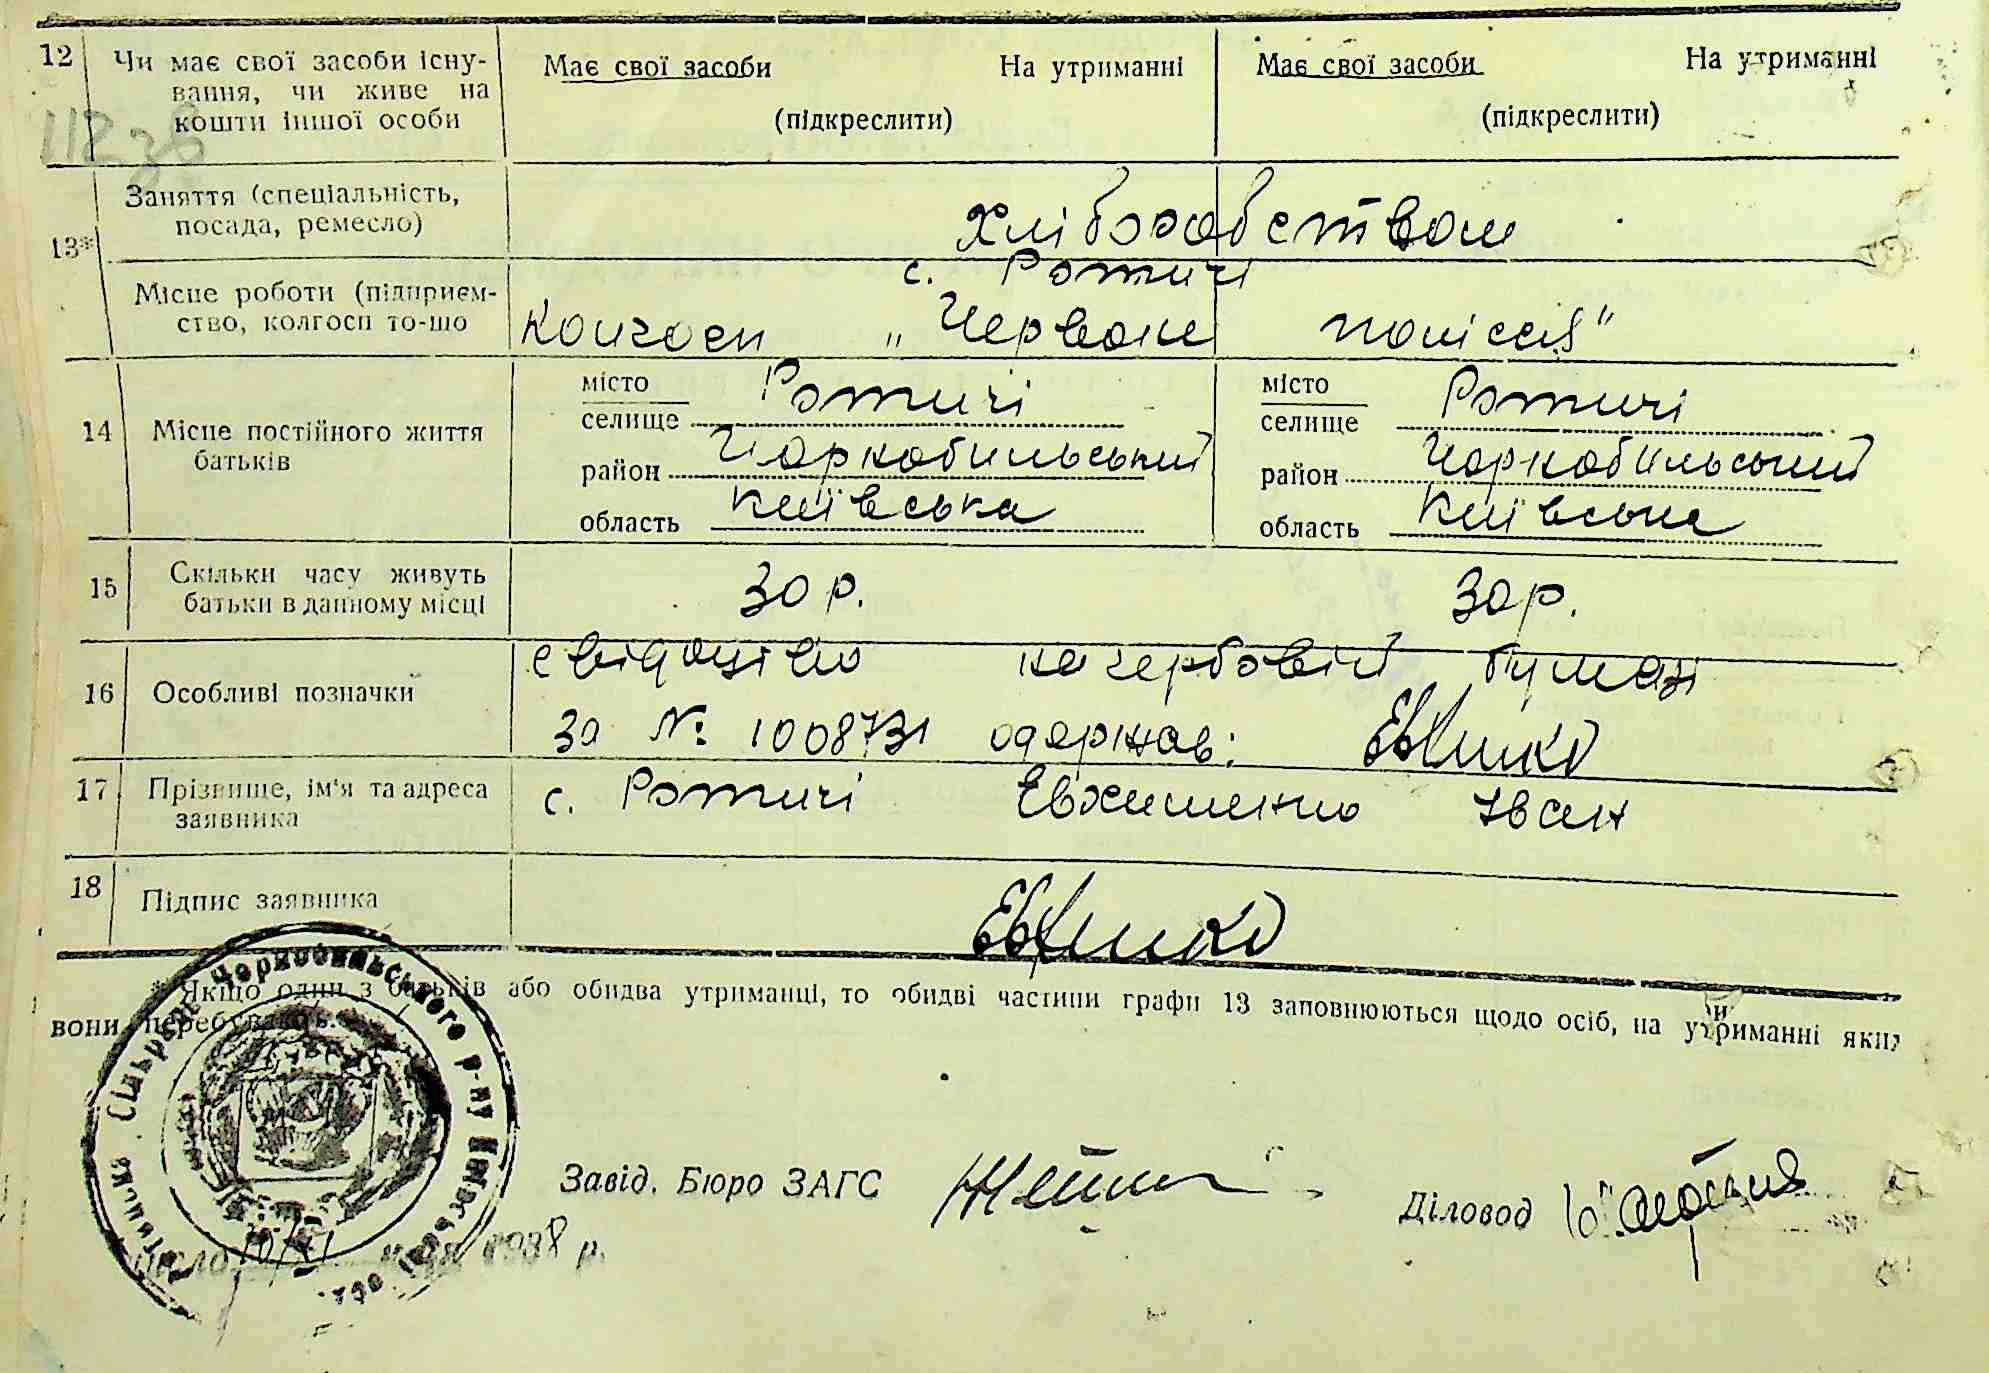 12 Чи має свої засоби існу-
вання, чи живе на
кошти іншої особи
Має свої засоби На утриманні
(підкреслити)
Має свої засоби На утриманні
(підкреслити)
13* Заняття (спеціальність,
посада, ремесло)
Хліборобством
Місце роботи (підприєм-
ство, колгосп то-що
с. Ротичі
Колгосп „Червоне поліссія"
14 Місце постійного життя
батьків
місто
селище Ротичі
район Чорнобильський
область Київська
місто
селище Ротичі
район Чорнобильський
область Київська
15 Скільки часу живуть
батьки в данному місці
30 р. 30 р.
16 Особливі позначки
свідоцтво на гербовій бумазі
за № 1008731 одержав:
17 Прізвище, ім'я та адреса
заявника
с. Ротичі Евхименко Іван
18 Підпис заявника
* Якщо один з батьків або обидва утриманці, то обидві частини графи 13 заповнюються щодо осіб, на утриманні яких
вони перебувають.
Сільрада Чорнобильського р-ну Київської обл.
Завід. Бюро ЗАГС
Діловод
1938 р.